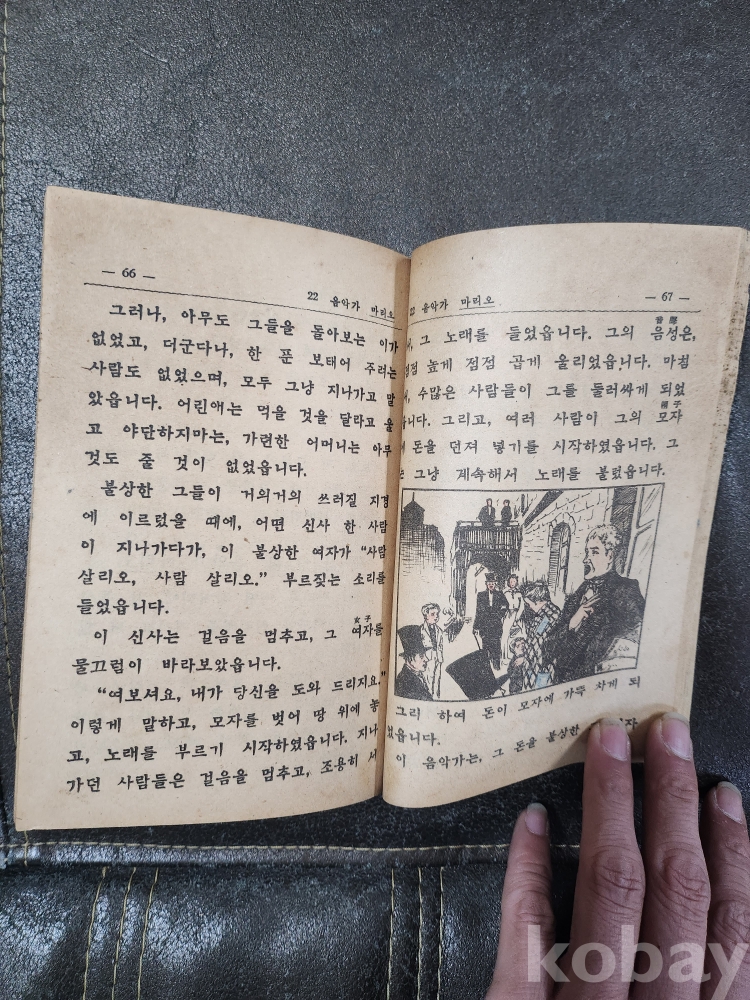 — 66 —
22 음악가 마리오
그러나, 아무도 그들을 돌아보는 이가
없었고, 더군다나, 한 푼 보태어 주려는
사람도 없었으며, 모두 그냥 지나가고 말
았읍니다. 어린애는 먹을 것을 달라고 울
고 야단하지마는, 가련한 어머니는 아무
것도 줄 것이 없었읍니다.
불상한 그들이 거의거의 쓰러질 지경
에 이르렀을 때에, 어떤 신사 한 사람
이 지나가다가, 이 불상한 여자가 “사람
살리오, 사람 살리오.” 부르짖는 소리를
들었읍니다.
女子
이 신사는 걸음을 멈추고, 그 여자를
물끄럼이 바라보았읍니다.
“여보셔요, 내가 당신을 도와 드리지요.”
이렇게 말하고, 모자를 벗어 땅 위에 놓
고, 노래를 부르기 시작하였읍니다. 지나
가던 사람들은 걸음을 멈추고, 조용히 서
22 음악가 마리오
— 67 —
音聲
서, 그 노래를 들었읍니다. 그의 음성은,
점점 높게 점점 곱게 울리었읍니다. 마침
수많은 사람들이 그를 둘러싸게 되었
帽子
읍니다. 그리고, 여러 사람이 그의 모자
에 돈을 던져 넣기를 시작하였읍니다. 그
는 그냥 계속해서 노래를 불렀읍니다.
그리 하여 돈이 모자에 가뜩 차게 되
었읍니다.
이 음악가는, 그 돈을 불상한
kobay